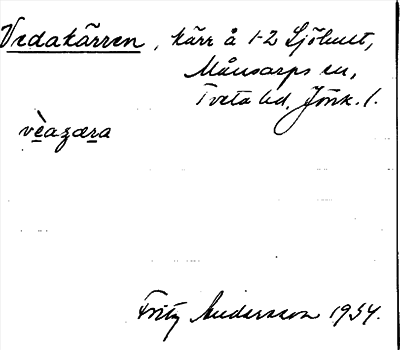 Vedakärren, kärr å 1-2 Sjöhult,
Månsarps sn,
Tveta hd. Jönk. l.
vèaʒæra
Fritz Andersson 1934.